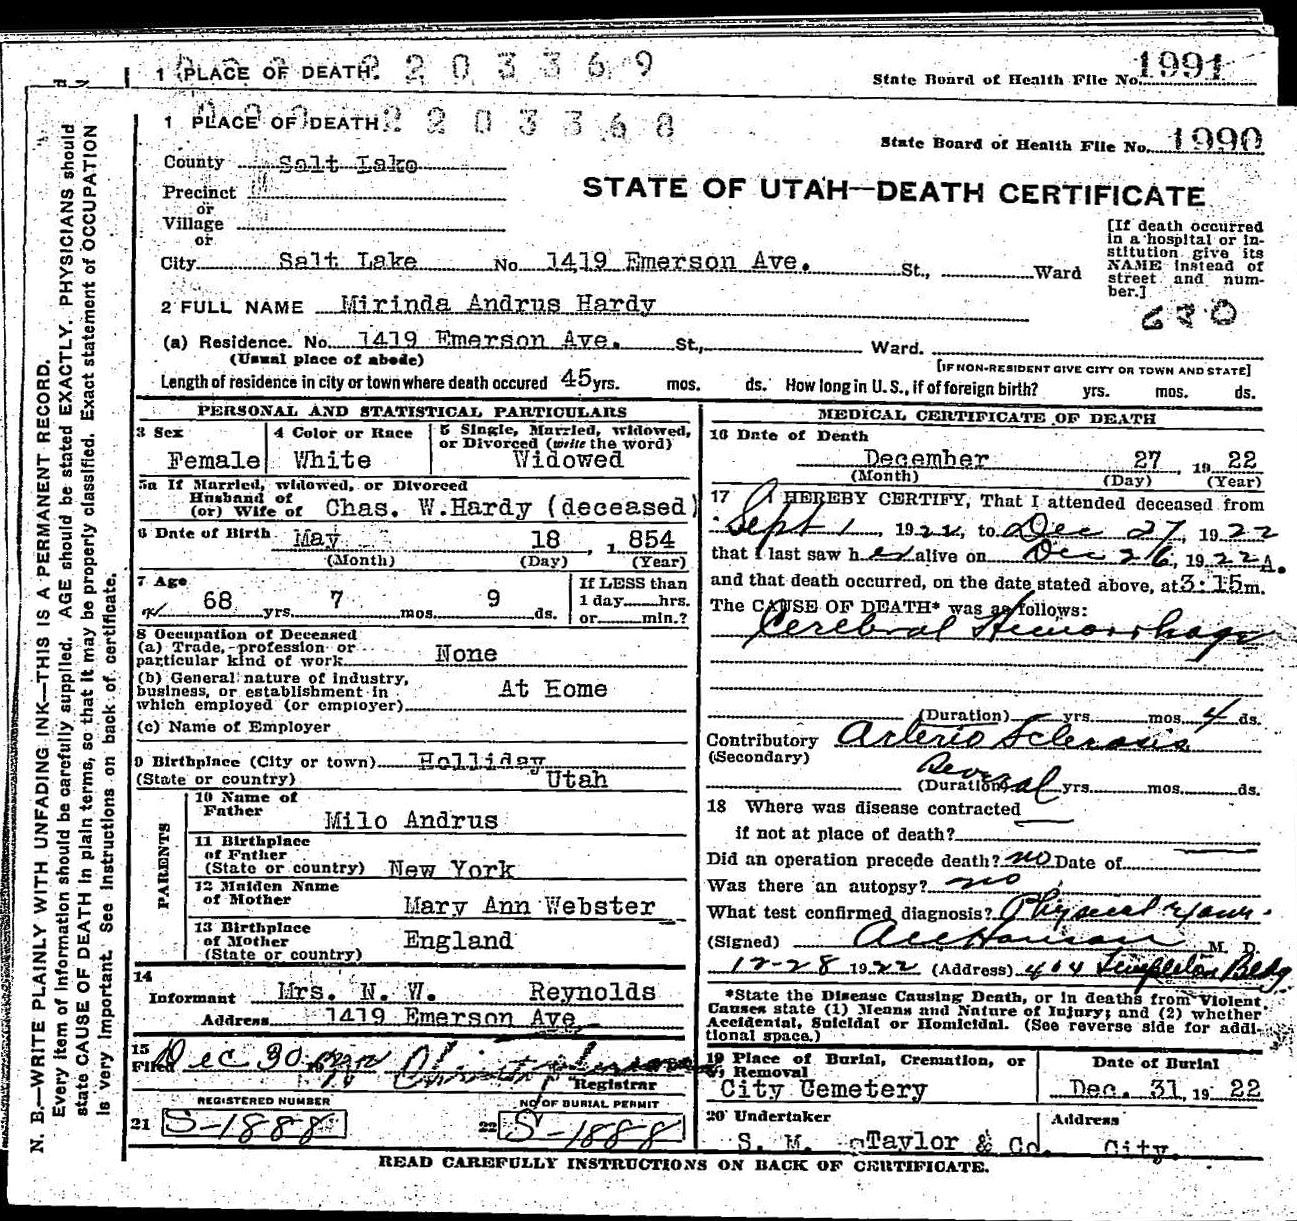 1 PLACE OF DEATH. 2203369
State Board of Health File No. 1991
1 PLACE OF DEATH 2203368
State Board of Health File No. 1990
County Salt Lake
STATE OF UTAH—DEATH CERTIFICATE
Precinct
or
Village
or
City Salt Lake No 1419 Emerson Ave. St., Ward
[If death occurred
in a hospital or in-
stitution give its
NAME instead of
street and num-
ber.]
2 FULL NAME Mirinda Andrus Hardy
(a) Residence. No. 1419 Emerson Ave. St, Ward.
(Usual place of abode)
[IF NON-RESIDENT GIVE CITY OR TOWN AND STATE]
Length of residence in city or town where death occured 45 yrs. mos. ds. How long in U. S., if of foreign birth? yrs. mos. ds.
PERSONAL AND STATISTICAL PARTICULARS
3 Sex
Female
4 Color or Race
White
5 Single, Married, widowed,
or Divorced (write the word)
Widowed
5a If Married, widowed, or Divorced
Husband of
(or) Wife of Chas. W.Hardy (deceased)
6 Date of Birth May 18, 1854
(Month) (Day) (Year)
7 Age
68 yrs. 7 mos. 9 ds.
If LESS than
1 day hrs.
or min.?
8 Occupation of Deceased
(a) Trade, profession or
particular kind of work None
(b) General nature of industry,
business, or establishment in
which employed (or employer) At Home
(c) Name of Employer
9 Birthplace (City or town) Holliday
(State or country) Utah
PARENTS
10 Name of
Father Milo Andrus
11 Birthplace
of Father
(State or country) New York
12 Maiden Name
of Mother Mary Ann Webster
13 Birthplace
of Mother
(State or country) England
14
Informant Mrs. N. W. Reynolds
Address 1419 Emerson Ave
15
Filed Dec 30
Registrar
REGISTERED NUMBER
21 S-1888
NO OF BURIAL PERMIT
22 S-1888
MEDICAL CERTIFICATE OF DEATH
16 Date of Death
December 27, 1922
(Month) (Day) (Year)
17 I HEREBY CERTIFY, That I attended deceased from
Sept 1, 1922, to Dec 27, 1922
that I last saw her alive on Dec 26, 1922
and that death occurred, on the date stated above, at 3:15 A.m.
The CAUSE OF DEATH* was as follows:
Cerebral Hemorrhage
(Duration) yrs. mos. 4 ds.
Contributory Arterio Sclerosis
(Secondary)
(Duration) Several yrs. mos. ds.
18 Where was disease contracted
if not at place of death?
Did an operation precede death? no Date of
Was there an autopsy? no
What test confirmed diagnosis? Physical Exam.
(Signed) M. D.
12-28 1922 (Address) 404 Templeton Bldg
*State the Disease Causing Death, or in deaths from Violent
Causes state (1) Means and Nature of Injury; and (2) whether
Accidental, Suicidal or Homicidal. (See reverse side for addi-
tional space.)
19 Place of Burial, Cremation, or
Removal
City Cemetery
Date of Burial
Dec. 31, 1922
20 Undertaker
S. M. Taylor & Co.
Address
City.
READ CAREFULLY INSTRUCTIONS ON BACK OF CERTIFICATE.
N. B.—WRITE PLAINLY WITH UNFADING INK—THIS IS A PERMANENT RECORD.
Every item of information should be carefully supplied. AGE should be stated EXACTLY. PHYSICIANS should
state CAUSE OF DEATH in plain terms, so that it may be properly classified. Exact statement of OCCUPATION
is very important. See instructions on back of certificate.